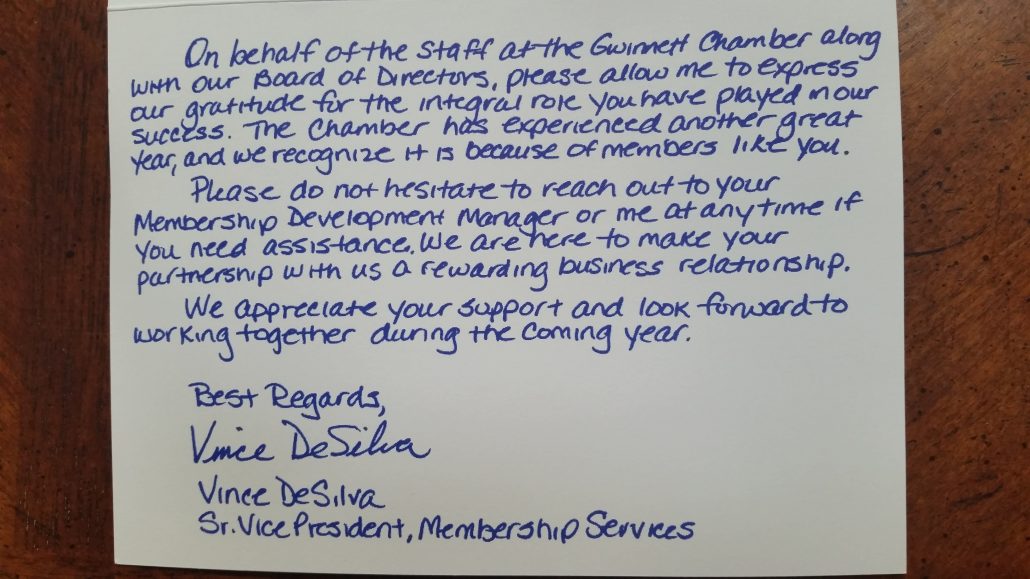 On behalf of the staff at the Gwinnett Chamber along
with our Board of Directors, please allow me to express
our gratitude for the integral role you have played in our
success. The Chamber has experienced another great
year, and we recognize it is because of members like you.
Please do not hesitate to reach out to your
Membership Development Manager or me at anytime if
you need assistance. We are here to make your
partnership with us a rewarding business relationship.
We appreciate your support and look forward to
working together during the coming year.
Best Regards,
Vince DeSilva
Vince DeSilva
Sr. Vice President, Membership Services